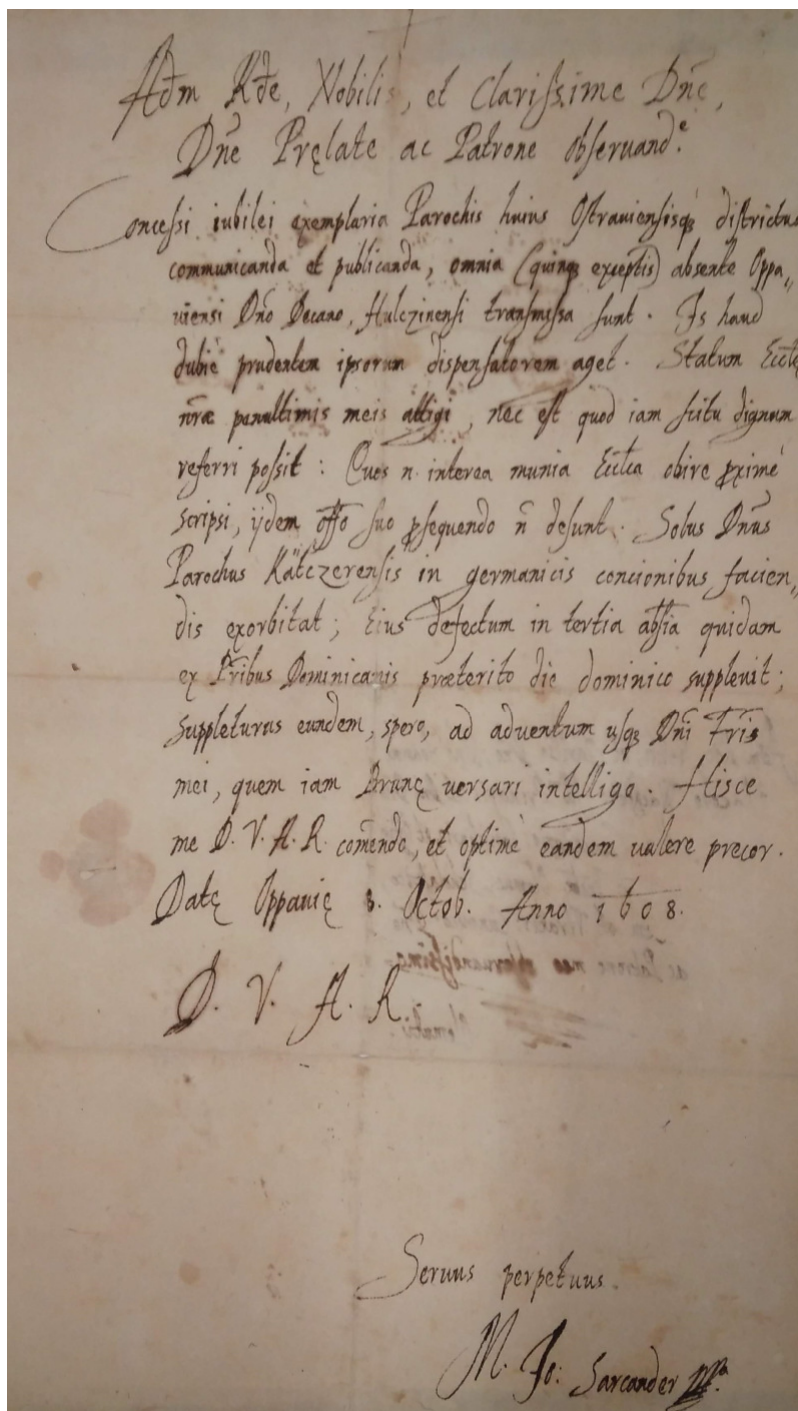 Adm Rde, Nobilis, et Clarissime Dne,
Dne Pręlate ac Patrone obseruand.e
Concessi iubilei exemplaria Parochis huius Ostrauiensisq districtus
communicanda et publicanda, omnia (quinq exceptis) absente Oppa„
uiensi Dno Decano, Hulczinensi transmissa sunt. Is haud
dubiè prudentem ipsorum dispensatorem aget. Statum Eccłę
nræ penultimis meis attigi, nec est quod iam scitu dignum
referri possit: Quos n. interea munia Eccłea obire proximè
scripsi, ijdem offo suo prosequendo n desunt. Solus Dnus
Parochus Kätczerensis in germanicis concionibus facien„
dis exorbitat; Eius defectum in tertia absia quidam
ex Pribus Dominicanis præterito die dominico suppleuit;
suppleturus eundem, spero, ad aduentum usq Dni Fris
mei, quem iam Brunę uersari intelligo. Hisce
me D. V. A. R. comendo, et optimè eandem ualere precor.
Datę Oppauię 8. Octob. Anno 1608.
D. V. A. R.
Seruus perpetuus.
M. Jo: Sarcander